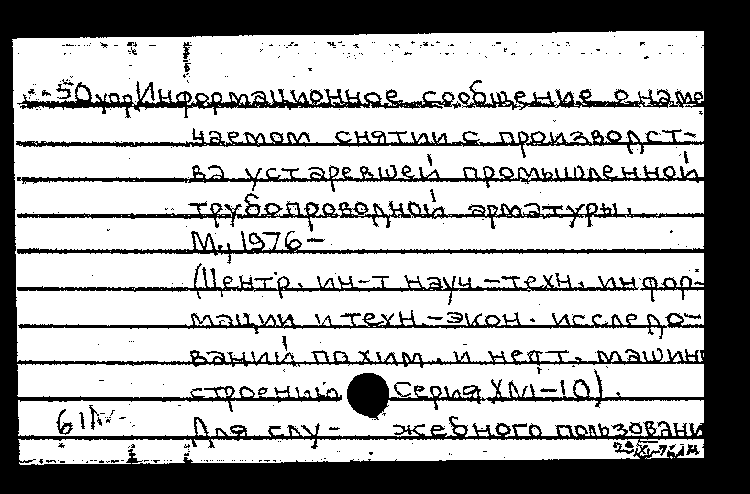 50упр Информационное сообщение о наме
чаемом снятии с производст-
ва устаревшей промышленной
трубопроводной арматуры.
М., 1976-
(Центр. ин-т науч.-техн. инфор-
мации и техн.-экон. исследо-
ваний по хим. и нефт. машин
строению Серия ХМ-10).
Для слу- жебного пользовани